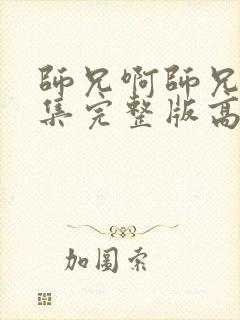 師兄啊師兄
集完整版高
加圖索